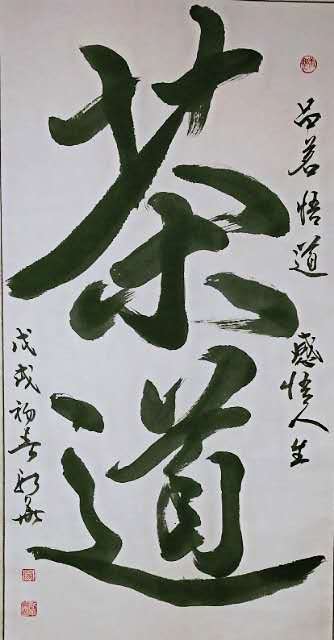 茶道
品茗悟道 感悟人生
戊戌初春